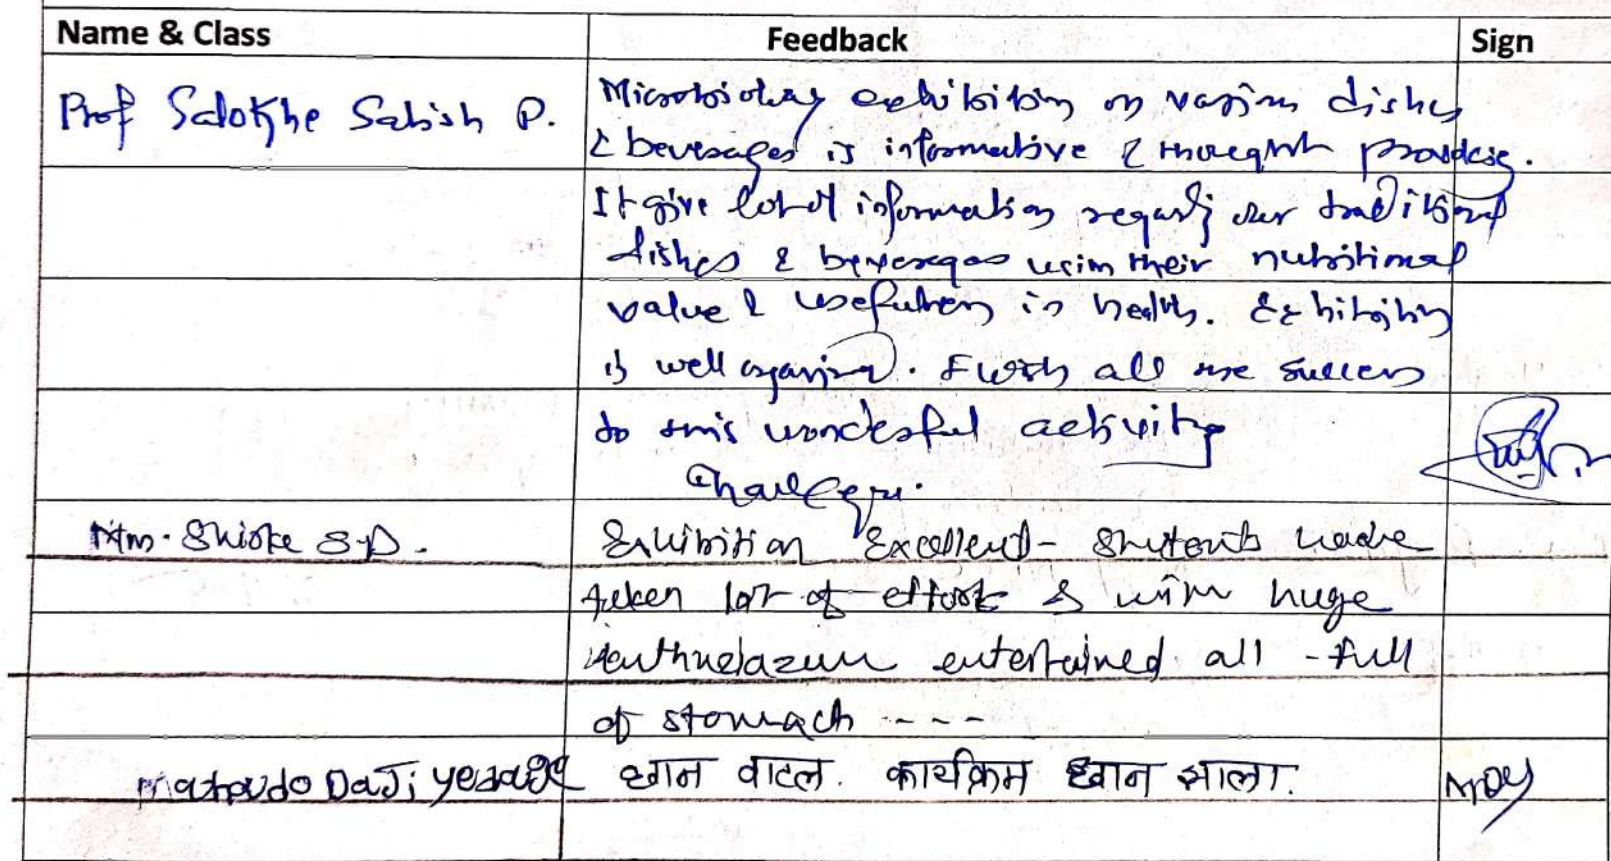 Name & Class Feedback Sign
Prof Salokhe Satish P. Microbiology exhibition on various dishes
& beverages is informative & thought
It give lot of information regardi our traditional
dishes & beverages with their nutritional
value & usefulness in health. Exhibition
is well organised. I wish all the success
to this wonderful activity
Mm. Shirke S.D. Exhibition Excellent - Students have
taken lot of effort & with huge
entertained all - full
of stomach ----
DaJi छान वाटल. कार्यक्रम छान झाला.